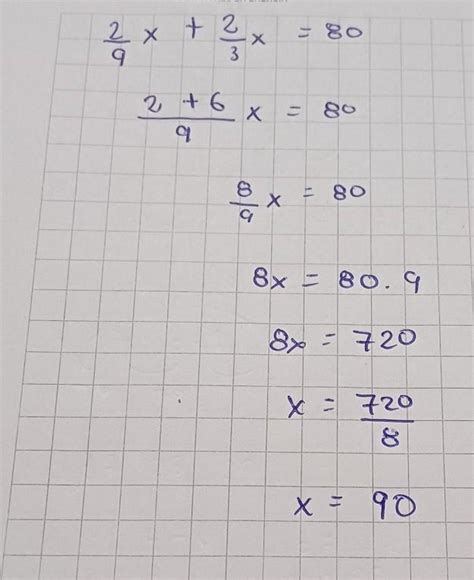 2/9 x + 2/3 x = 80
2 + 6/9 x = 80
8/9 x = 80
8x = 80 . 9
8x = 720
x = 720/8
x = 90